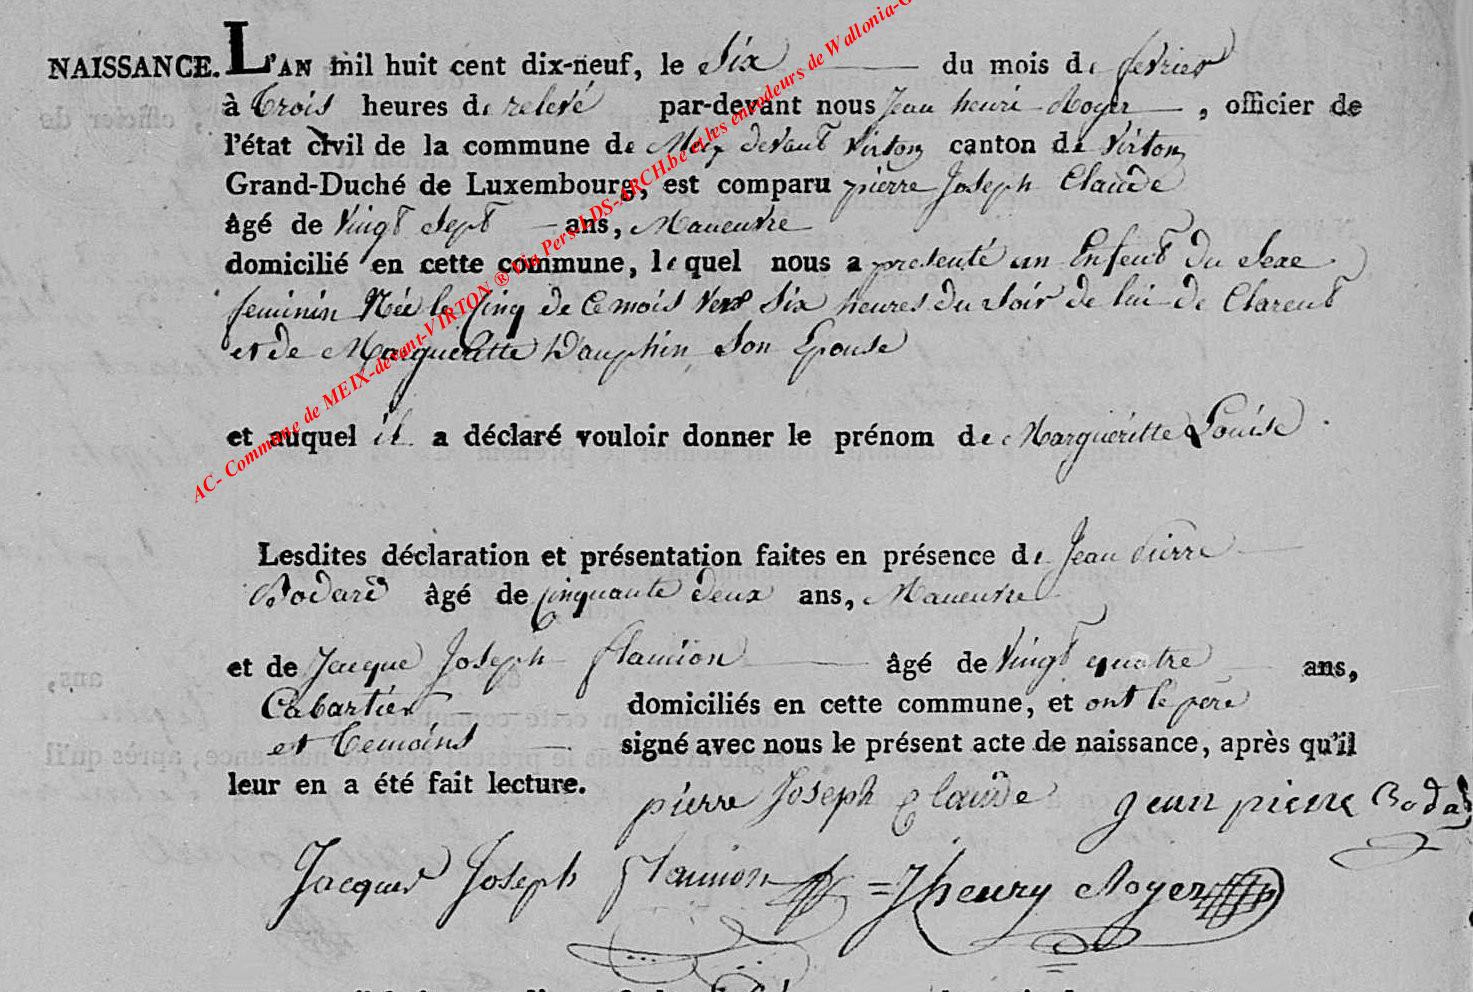 NAISSANCE. L'AN mil huit cent dix-neuf, le Six du mois de fevrier
à trois heures de relevé par-devant nous Jean henri Royer, officier de
l'état civil de la commune de Meix devant Virton canton de Virton
Grand-Duché de Luxembourg, est comparu pierre Joseph Claude
âgé de Vingt Sept ans, Maneuvre
domicilié en cette commune, lequel nous a presenté un Enfent du Sexe
feminin Née le Cinq de Ce mois vers Six heures du Soir de lui de Clareut
et de Margueritte Dauphin Son Epouse
et auquel il a déclaré vouloir donner le prénom de Margueritte Louise
Lesdites déclaration et présentation faites en présence de Jean Pierre
Bodard âgé de Cinquante deux ans, Maneuvre
et de Jacque Joseph flamion âgé de Vingt quatre ans,
Cabartier domiciliés en cette commune, et ont le père
et temoins signé avec nous le présent acte de naissance, après qu'il
leur en a été fait lecture.
pierre Joseph Claude jean pierre Boda
Jacques Joseph flamion = Jhenry Royer
AC- Commune de MEIX-devant-VIRTON ® Via Pers LDS-ARCH.be et les encodeurs de Wallonia-G